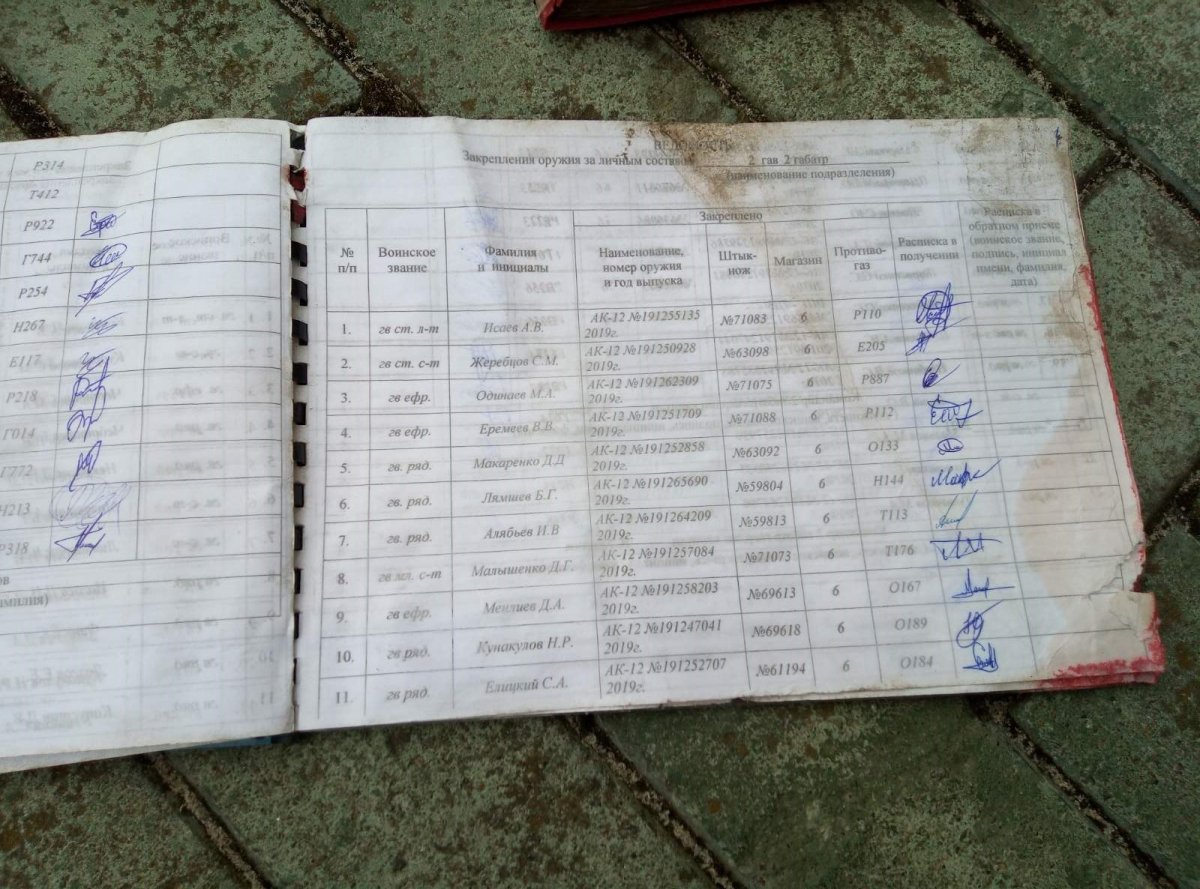 Р314
Т412
Р922
Г744
Р254
Н267
Е117
Р218
Г014
Г772
Н213
Р318
ов
амилия)
ВЕДОМОСТЬ
Закрепления оружия за личным составом 2 гав 2 габатр
(наименование подразделения)
№ п/п
Воинское звание
Фамилия и инициалы
Закреплено
Наименование, номер оружия и год выпуска
Штык-нож
Магазин
Противо-газ
Расписка в получении
Расписка в обратном приеме (воинское звание, подпись, инициал имени, фамилия, дата)
1. гв ст. л-т Исаев А.В. АК-12 №191255135 2019г. №71083 6 Р110
2. гв ст. с-т Жеребцов С.М. АК-12 №191250928 2019г. №63098 6 Е205
3. гв ефр. Одинаев М.А. АК-12 №191262309 2019г. №71075 6 Р887
4. гв ефр. Еремеев В.В. АК-12 №191251709 2019г. №71088 6 Р112
5. гв. ряд. Макаренко Д.Д АК-12 №191252858 2019г. №63092 6 О133
6. гв. ряд. Лямшев Б.Г. АК-12 №191265690 2019г. №59804 6 Н144
7. гв. ряд. Алябьев И.В АК-12 №191264209 2019г. №59813 6 Т113
8. гв мл. с-т Малышенко Д.Г. АК-12 №191257084 2019г. №71073 6 Т176
9. гв ефр. Менлиев Д.А. АК-12 №191258203 2019г. №69613 6 О167
10. гв ряд. Кунакулов Н.Р. АК-12 №191247041 2019г. №69618 6 О189
11. гв ряд. Елицкий С.А. АК-12 №191252707 2019г. №61194 6 О184